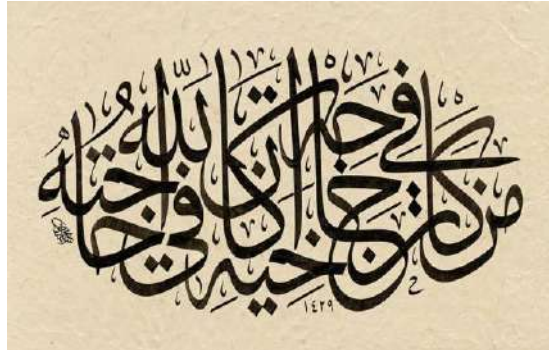 من كان في حاجة اخيه كان الله في حاجته
١٤٢٩